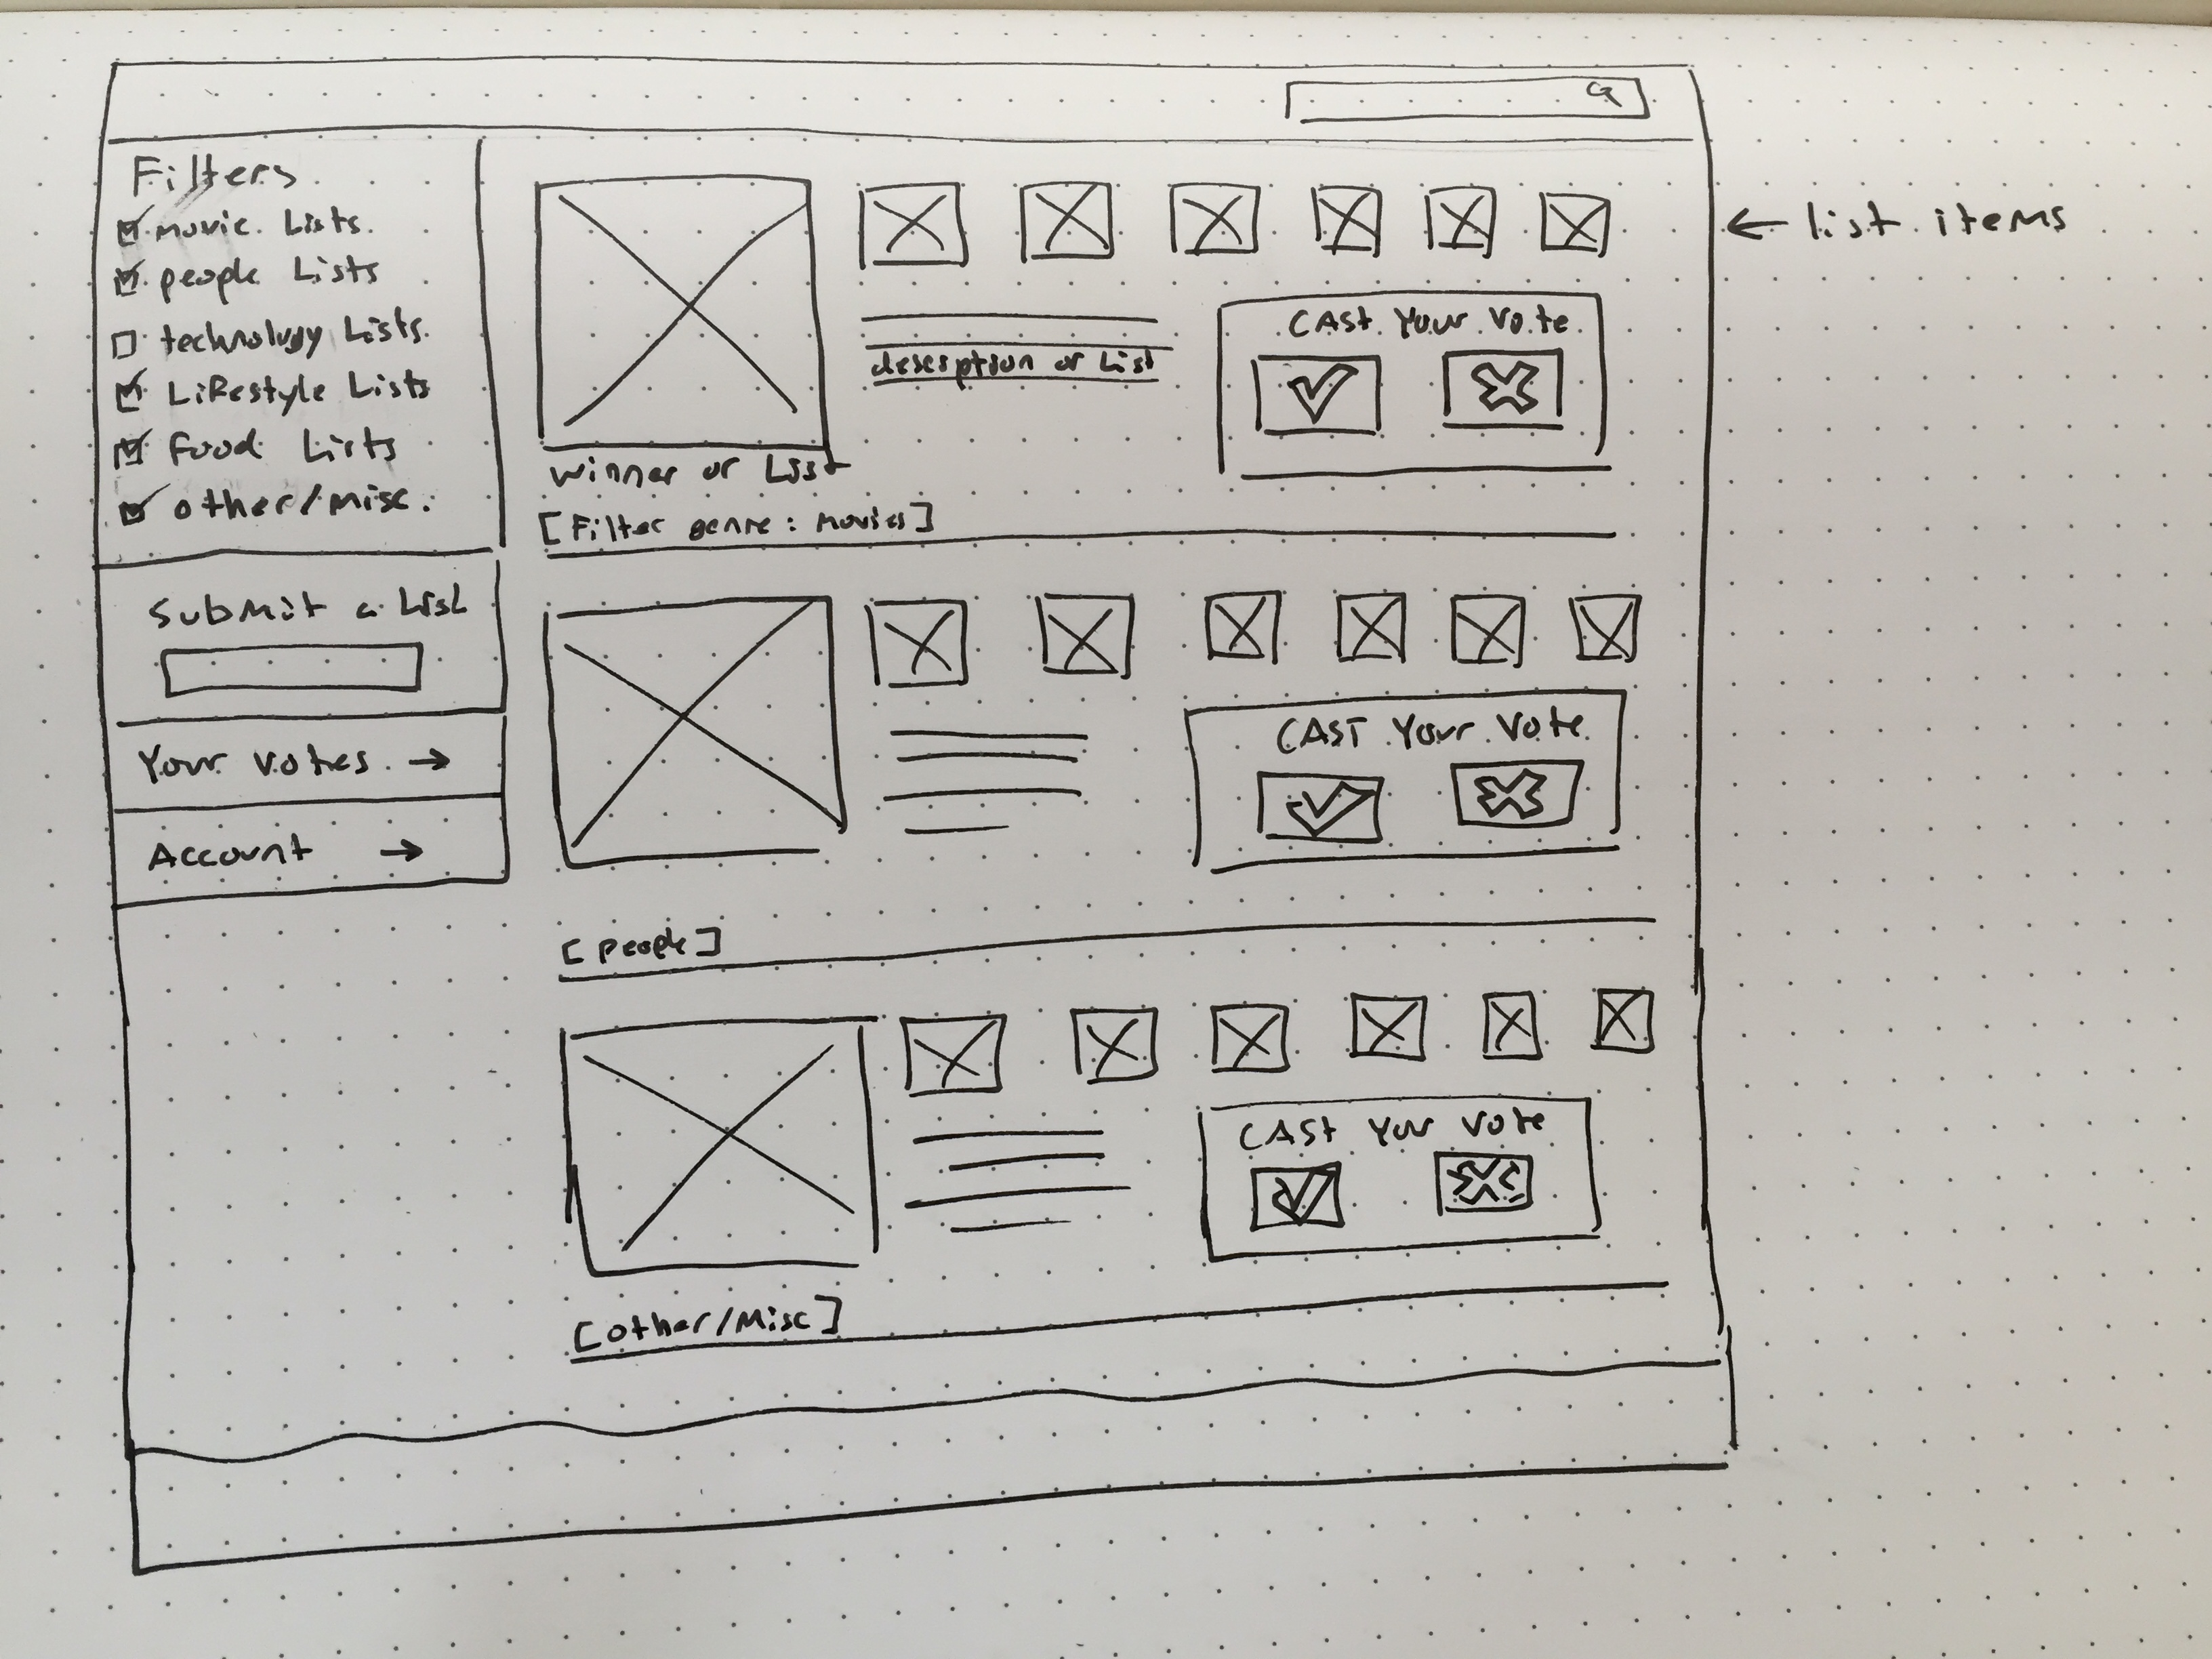 Filters
movie Lists
people Lists
technology Lists
Lifestyle Lists
Food Lists
other/misc.
Submit a List
Your votes →
Account →
← list items
CAST Your Vote
description of List
winner of List
[Filter genre: movies]
CAST Your Vote
[people]
CAST Your Vote
[other/Misc]